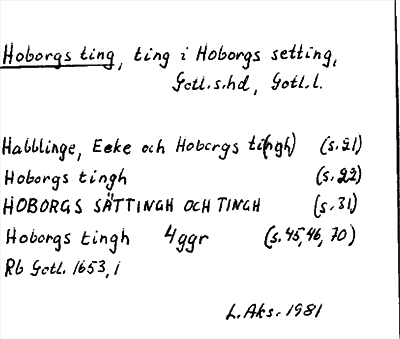 Hoborgs ting, ting i Hoborgs setting,
Gotl.s.hd, Gotl.l.
Habblinge, Eeke och Hoborgs ti(ngh) (s.21)
Hoborgs tingh (s.22)
HOBORGS SÄTTINGH OCH TINGH (s.31)
Hoborgs tingh 4ggr (s.45,46,70)
Rb Gotl. 1653,1
L.Aks. 1981